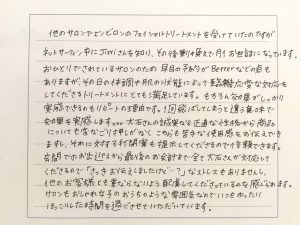 他のサロンでエンビロンのフェイシャルトリートメントを受けていたのですが
ネットサーフィン中に を知り、その後割と直ぐで月1お世話になっています。
おひとりでされているサロンのため早目の予約がBetterなどの点も
ありますが、その日の体調や肌の状態によって臨機応変な対応を
してくださるトリートメントにとても満足しています。もちろん効果がしっかり
実感できるのもリピートの理由です。1回 ばしてしまうと違う意味で
効果を実感します… 大石さんの誠実な正直な性格から商品
についても全くごり押しがなく こちらも気楽な使用感などお伝えでき
ますし、それに対する打開案も提示してくださるので信頼できます。
玄関でのお出迎えから最後のお会計まで全て大石さんが対応して
くださるので「さっきお伝えしましたけど…?」なストレスもありませんし、
他のお客様とも重ならないよう配慮してくださっているのを感じられます。
サロンもおしゃれな子のおうちのような雰囲気なのでいつもゆったり
ほっこりした時間を過ごさせていただいています。